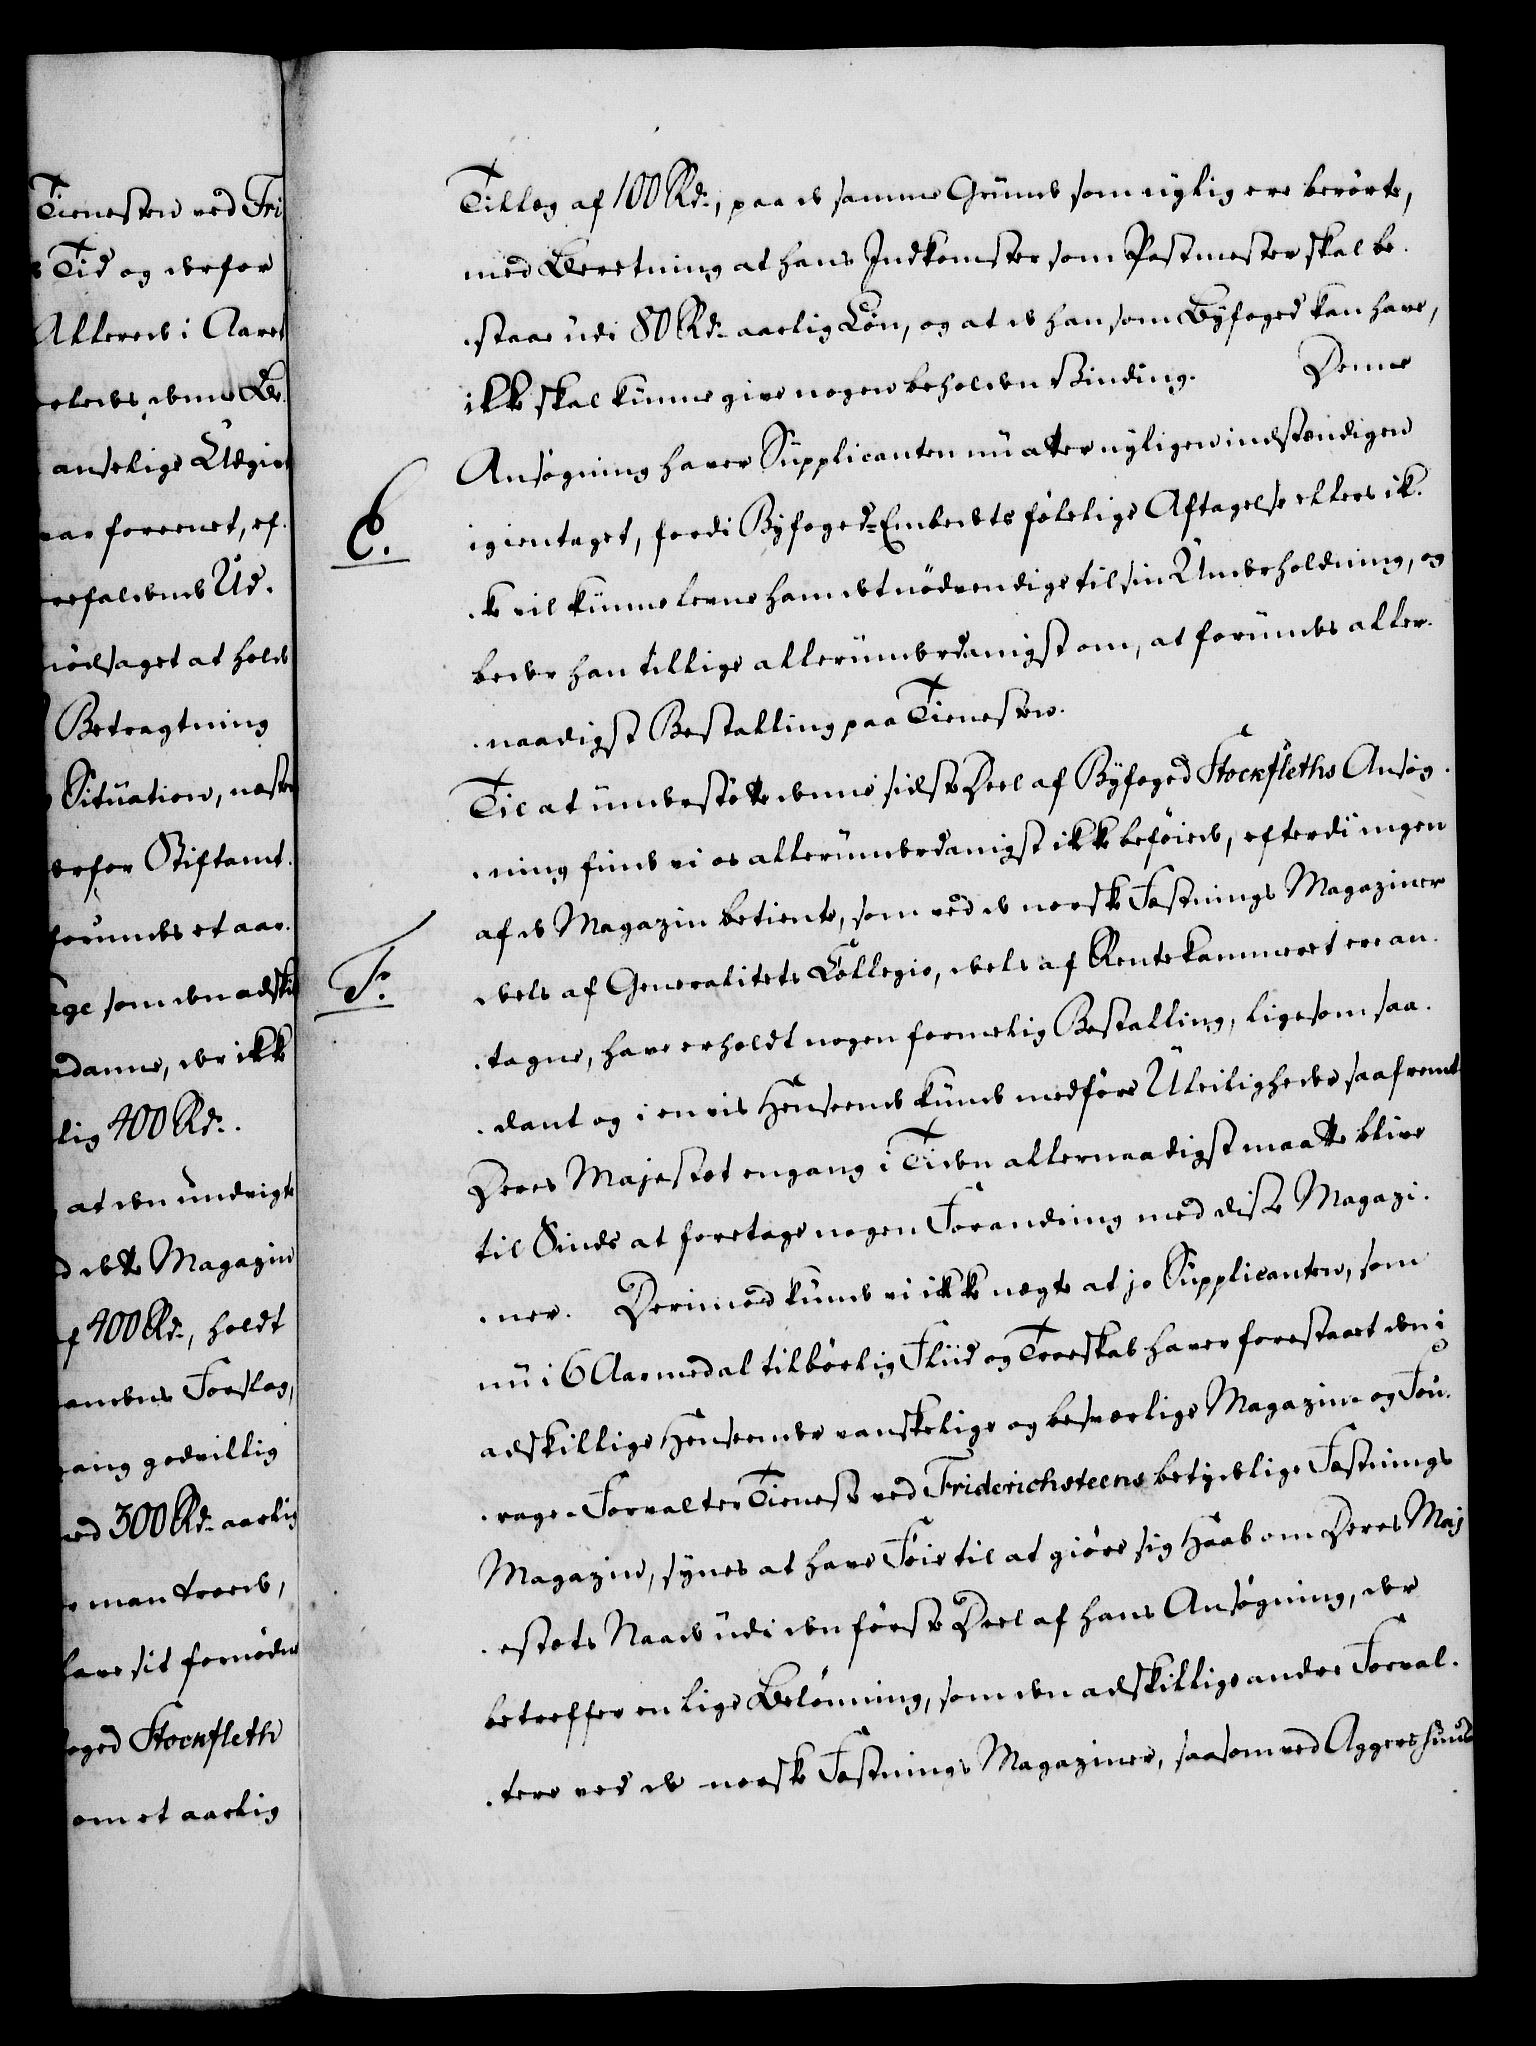 Tienesten ved Fri
Tid og derfor
Allerede i Aaret
eledes denne Be-
anselige Udgivt
var foreenet, ef-
refaldende Ud-
nödsaget at holde
Betragtning
Situation, næste
derfor Stiftamt-
forundes et aar-
age som den adski
edanne, der ikke
lig 400 Rd.
at den undrigt
d dette Magazin
f 400 Rd., holdt
andens Forslag,
gang godvillig
ved 300 Rd. aarlig
man troede,
have sit fornødne
oged Stockfleth
om et aarlig
Tillæg af 100 Rd., paa de samme Grunde som nylig ere berørte,
med Beretning at hans Indkomster som Postmester skal be-
-staae udi 80 Rd. aarlig Løn, og at de han som Byfoged kan have,
ikke skal kunne give nogen beholden Binding. Denne
Ansøgning haver Supplicanten nu atter nyligen indstændigen
E.
igientaget, fordi Byfoged-Embedets følelige Aftagelse ellers ik-
-ke vil kunne levne ham det nödvendige til sin Underholdning, og
beder han tillige allerunderdanigst om, at forundes aller-
-naadigst Bestalling paa Tienesten.
Til at understøtte denne sidste Deel af Byfoged Stockfleths Ansøg-
-ning finde vi os allerunderdanigst ikke beføiede, efterdi ingen
af de Magazin betiente, som ved de norske Fæstnings Magaziner
F.
deels af Generalitets Collegio, deels af Rentekammeret ere an-
-tagne, have erholdt nogen formelig Bestalling, ligesom saa-
-dant og i en vis Henseende kunde medføre Uleiligheder saafremt
Deres Majestæt engang i Tiden allernaadigst maatte blive
til Sinds at foretage nogen Forandring med disse Magazi-
-ner. Derimod kunde vi ikke nægte at jo Supplicanten, som
nu i 6 Aar med al tilbørlig Fliid og Troeskab haver forestaaet den i
adskillige Henseender vanskelige og besværlige Magazin- og Fou-
-rage-Forvalter Tieneste ved Friderichsteens betydelige Fæstnings
Magazin, synes at have Føie til at giøre sig Haab om Deres Maj-
-estæts Naade udi den første Deel af hans Ansøgning, der
betreffer en lige Belønning, som den adskillige andre Forval-
-tere ved de norske Fæstnings Magaziner, saasom ved Aggershuus